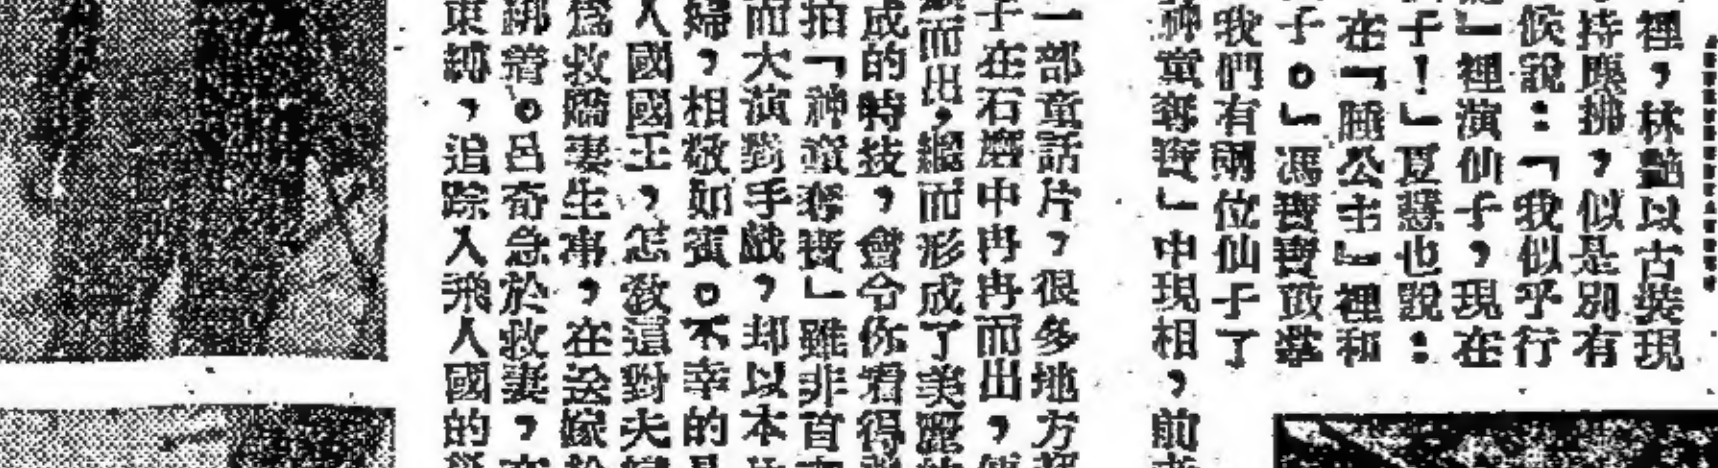 裡，林艷以古裝現
持塵拂，似是別有
候說：「我似乎行
」裡演仙子，現在
子！」夏慧也說：
在「睡公主」裡和
子。」馮寶寶鼓掌
我們有兩位仙子了
神童奪寶」中現相，前
一部童話片，很多地方
子在石磨中冉冉而出，
而出，繼而形成了美麗
成的特技，會令你看得
拍「神童奪寶」雖非首
而大演對手戲，却以本
婦，相敬如賓。不幸的
人國國王，怎教這對夫
為救嬌妻生事，在送嫁
綁營。呂奇急於救妻，
東縛，追踪入飛人國的